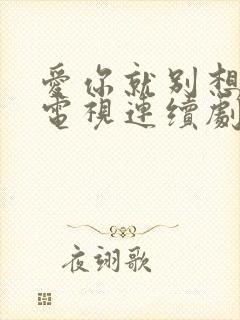 愛你就别想
電視連續劇
夜翊歌